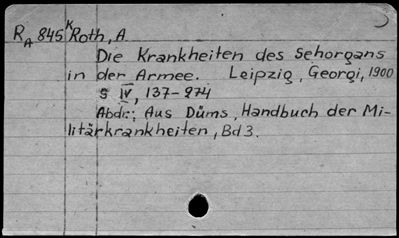 R A 845 K Roth, A
Die Krankheiten des Sehorgans
in der Armee. Leipzig, Georgi, 1900
S IV, 137-274
Abdr.: Aus Düms, Handbuch der Mi-
litärkrankheiten, Bd 3.